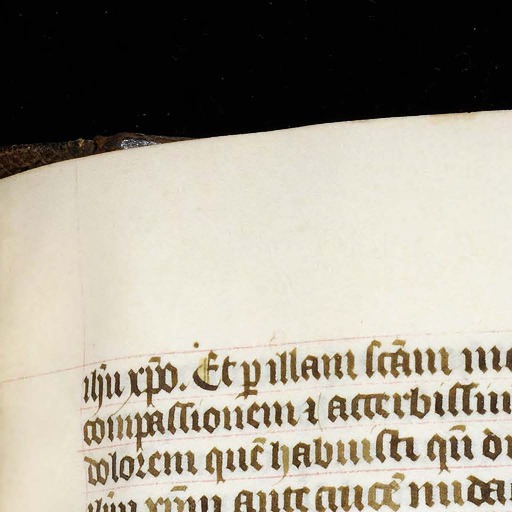 ihū xp̄o. Et ꝑ illam scām
compassionem ⁊ acerbissim
dolorem quē habuisti qn̄
ihm̄ xp̄m ante crucē nuda